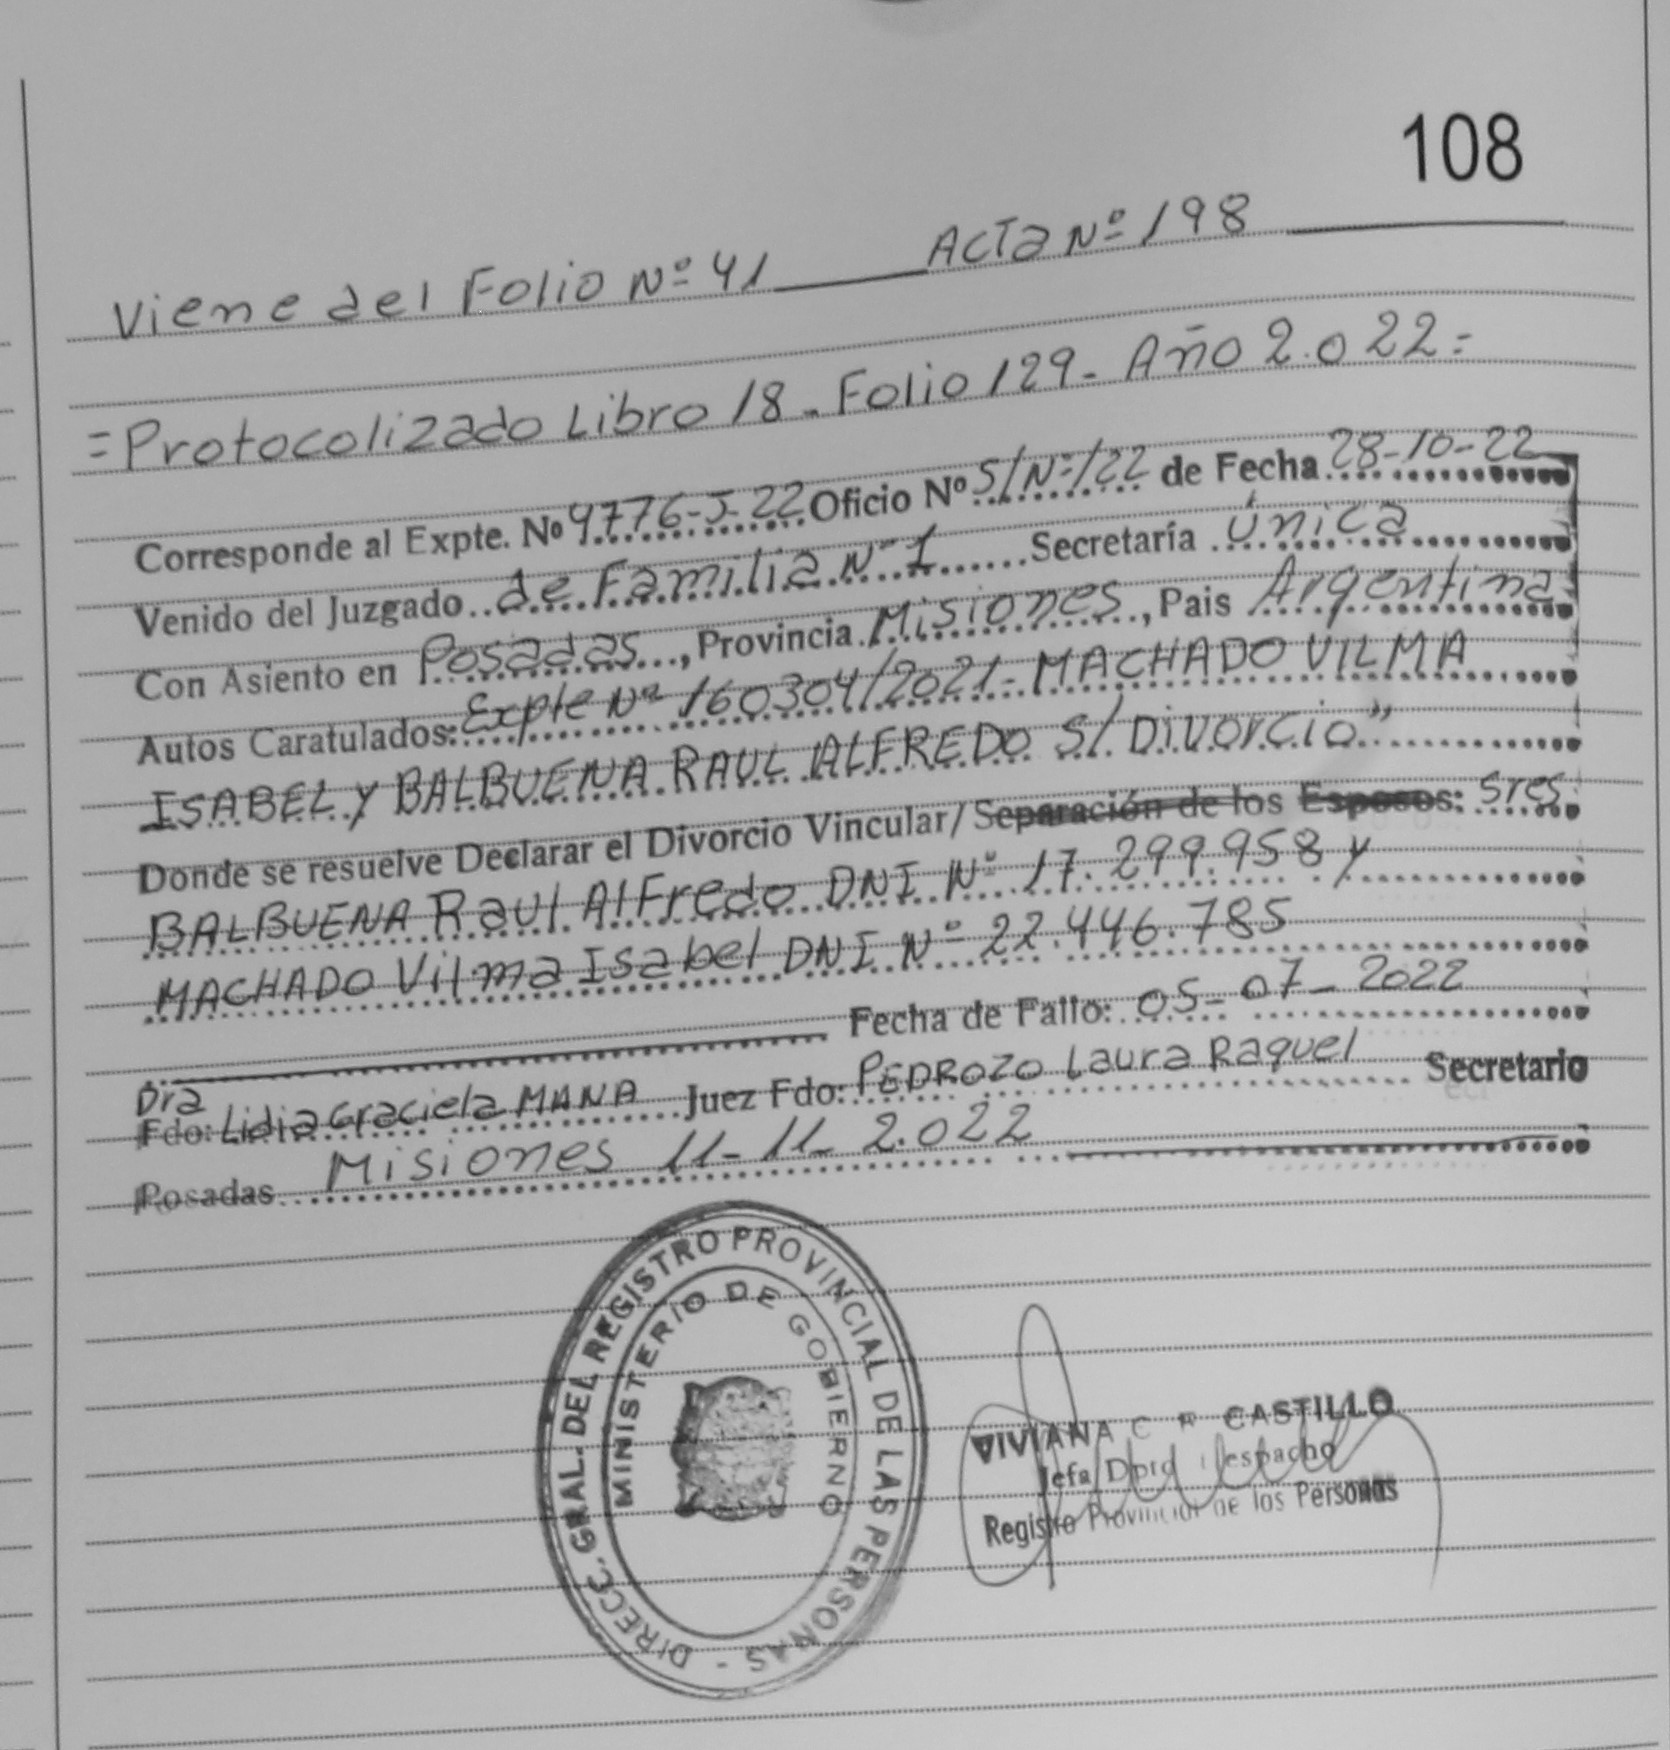 108
Viene del Folio Nº 41 Acta Nº 198
=Protocolizado Libro 18. Folio 129. Año 2.022=
Corresponde al Expte. Nº 4776-J-22 Oficio Nº S/Nº/22 de Fecha 28-10-22
Venido del Juzgado de Familia Nº 1 Secretaría Única
Con Asiento en Posadas, Provincia Misiones, Pais Argentina
Autos Caratulados: Expte Nº 160304/2021- MACHADO VILMA
ISABEL y BALBUENA RAUL ALFREDO S/ Divorcio"
Donde se resuelve Declarar el Divorcio Vincular/Separación de los Esposos: Sres.
BALBUENA Raul Alfredo DNI Nº 17.299.958 y
MACHADO Vilma Isabel DNI Nº 22.446.785
Fecha de Fallo: 05-07-2022
Dra
Fdo: Lidia Graciela MANA Juez Fdo: PEDROZO Laura Raquel Secretario
Posadas Misiones 11-11-2.022
DIRECC. GRAL. DEL REGISTRO PROVINCIAL DE LAS PERSONAS -
MINISTERIO DE GOBIERNO
VIVIANA C CASTILLO
Jefa Dpto Despacho
Registro Provincial de las Personas